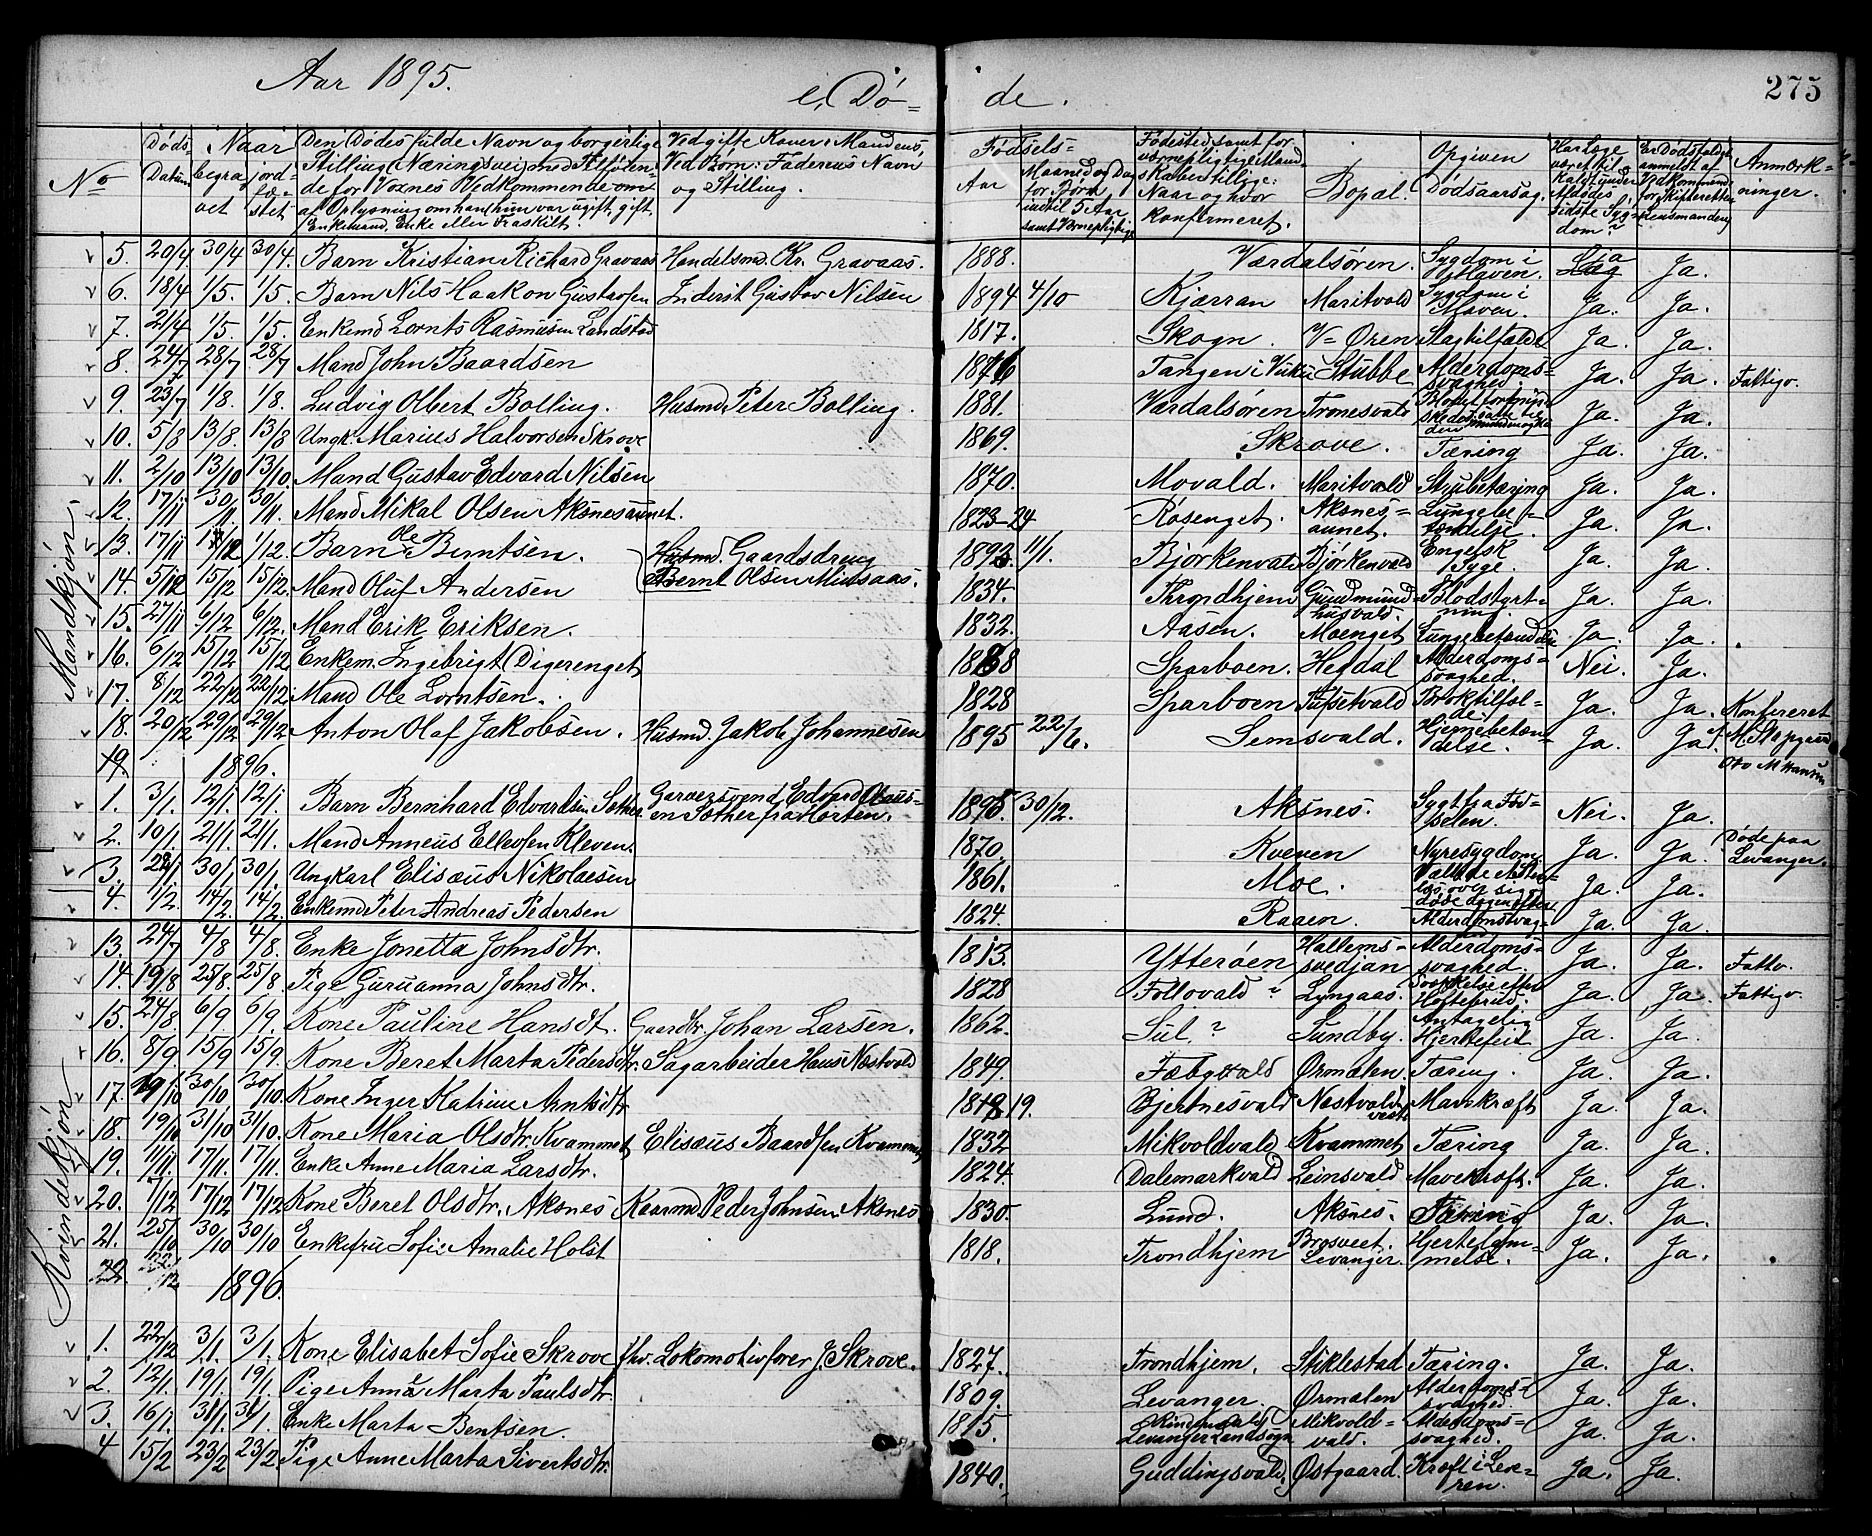 Aar 1895.
e, Dö=
de.
275
No
Døds-
Datum
Naar
begra
vet
jord-
fæ-
stet
Den Dødes fulde Navn og borgerlige
Stilling (Næringsvei) med Tilføien-
de for Voxnes Vedkommende om
af Oplysning om han (hun) var ugift, gift,
Enkemand, Enke eller Fraskilt.
Ved gifte Koner: Mandens,
Ved Børn: Faderens Navn
og Stilling.
Fødsels-
Aar
Maaned og Dag
for Børn
indtil 5 Aar
samt Vernepligtige
Fødested, samt for
værnepligtige Mand-
skaber tillige:
Naar og hvor
konfirmeret.
Bopæl.
Opgiven
Dødsaarsag.
Har Læge
været til-
kaldt under
Afdødes
sidste Syg-
dom?
Er Dødsfaldet
anmeldt af
Vedkommende
for Skifteretten
Lensmanden
Anmærk-
ninger.
Mandkjøn.
5. 20/4 30/4 30/4. Barn Kristian Richard Gravaas Handelsmd. Kr. Gravaas. 1888. Værdalsören. Sygdom i Maven. Ja Ja.
6. 18/4 1/5. 1/5. Barn Nils Haakon Gustavsen Inderst Gustav Nilsen 1894 4/10 Kjærran Maritvald Sygdom i Maven. Ja. Ja.
7. 21/4 1/5 1/5. Enkemd Lornts Rasmusen Landstad 1817. Skogn. V=Ören Slagtilfælde Ja. Ja.
8. 24/7 28/7 28/7 Mand John Baardsen Tangen i Vuku Stubbe Alderdoms=svaghed Ja. Ja. Fattigv.
9. 23/7 1/8. 1/8. Ludvig Olbert Bolling. Husmd Peter Bolling. 1881. Værdalsören Tronesvald Ja. Ja.
10. 5/8 13/8. 13/8 Ungk. Marius Halvorsen Skrove 1869. Skrove. Tæring Ja. Ja.
11. 2/10 13/10 13/10 Mand Gustav Edvard Nilsen 1870. Movald. Maritvald Strubetæring Ja. Ja.
12. 17/11 30/11 30/11. Mand Mikal Olsen Aksnesaunet. 1823-24 Rosenget. Aksnes=aunet. Lungebe=tændelse. Ja. Ja.
13. 17/11 1/12 1/12. Barn Ole Berntsen. Husmd. Gaardsdreng Bernt Olsen Midsaas. 1892. 11/1. Björkenvald Björkenvald Engelsk Syge. Ja. Ja.
14. 5/12 15/12 15/12. Mand Oluf Andersen 1834. Throndhjem Gudmundhusvald. Blodstyrtning Ja. Ja.
15. 27/11 6/12 6/12. Mand Erik Eriksen. 1832. Aasen. Moenget Lungebetændelse Ja. Ja.
16. 6/12 15/12 15/12 Enkem. Ingebrigt Digerenget Sparboen. Hegdal Alderdoms=svaghed. Nei. Ja.
17. 8/12 22/12 22/12. Mand Ole Lorntsen. 1828 Sparboen Tufsetvald Broktilfæl=de. Ja. Ja. Konfereret
18. 20/12 29/12 29/12 Anton Olaf Jakobsen. Husmd. Jakob Johannesen 1895 22/6. Semsvald. Hjernebetæn=delse. Ja. Ja.
19. 1896.
1. 3/1. 12/1. 12/1. Barn Bernhard Edvardsen Sother Garversvend Edvard Olaus=en Sother fra Horten. 1895. 30/12. Aksnes. Sygt fra Fød=selen. Nei. Ja.
2. 10/1. 21/1 21/1. Mand Anneus Ellevsen Kleven. 1870. Kveven Nyresygdom. Ja. Ja. Døde paa Levanger.
3. 22/1 30/1 30/1. Ungkarl Elisæus Nikolaisen 1861. Moe. Ja. Ja.
4. 1/2. 14/2. 14/2. Enkemd Peter Andreas Pedersen 1824. Raaen. Alderdomssvag= Ja. Ja.
Kvindekjøn
13. 24/7 4/8 4/8. Enke Jonetta Johnsdtr. 1813. Ytteröen Hallems=svedjan Alderdoms=svaghed. Ja. Ja. Fattv.
14. 19/8 25/8. 25/8. Pige Guruanna Johnsdtr. 1828 Follovald? Lyngaas. Svækkelse efter Hoftebrud. Ja. Ja. Fattigv.
15. 24/8. 6/9 6/9. Kone Pauline Hansdt. Gaardbr. Johan Larsen. 1862. Sul.? Sundby. Antagelig Hjertefeil Ja. Ja.
16. 8/9 15/9 15/9. Kone Beret Marta Pedersdtr. Sagarbeider Hans Næstvald 1849. Fæbyvald Ørmælen. Tæring. Ja. Ja.
17. 19/10 30/10 30/10. Kone Inger Katrine Arntsdtr 19. Bjertnesvald Næstvald Mavekræft Ja. Ja.
18. 19/10 31/10 31/10. Kone Maria Olsdtr. Kvammet Elisæus Baardsen Kvammet 1832 Mikvoldvald Kvammet Tæring Ja. Ja.
19. 1/11. 17/11 17/11. Enke Anne Maria Larsdtr. 1824. Dalemarkvald Leinsvald Mavekræft. Ja. Ja.
20. 7/12 17/12 17/12 Kone Beret Olsdtr. Aksnes Kaarmd Peder Johnsen Aksnes 1830. Lund. Aksnes. Tæring Ja. Ja.
21. 25/10 30/10 30/10 Enkefru Sofie Amalie Holst 1818. Trondhjem Brosveet. Levanger. Hjertelam=melse. Ja. Ja.
22. 22/12 1896.
1. 22/12 3/1. 3/1. Kone Elisabet Sofie Skrove fhv. Lokomotivfører J. Skrove. 1827. Trondhjem. Stiklestad Tæring. Ja. Ja.
2. 12/1. 19/1. 19/1. Pige Anna Marta Paulsdtr. 1809. Levanger. Ørmælen Alderdoms=svaghed Ja. Ja.
3. 16/1 31/1. 31/1. Enke Marta Bentsen. 1815. Levanger Landsogn Mikvold=vald. Alderdoms=svaghed. Ja. Ja.
4 15/2 23/2 23/2. Pige Anne Marta Sivertsdtr. 1840. Guddingsvald. Østgaard. Kræft i Lev=ren. Ja. Ja.